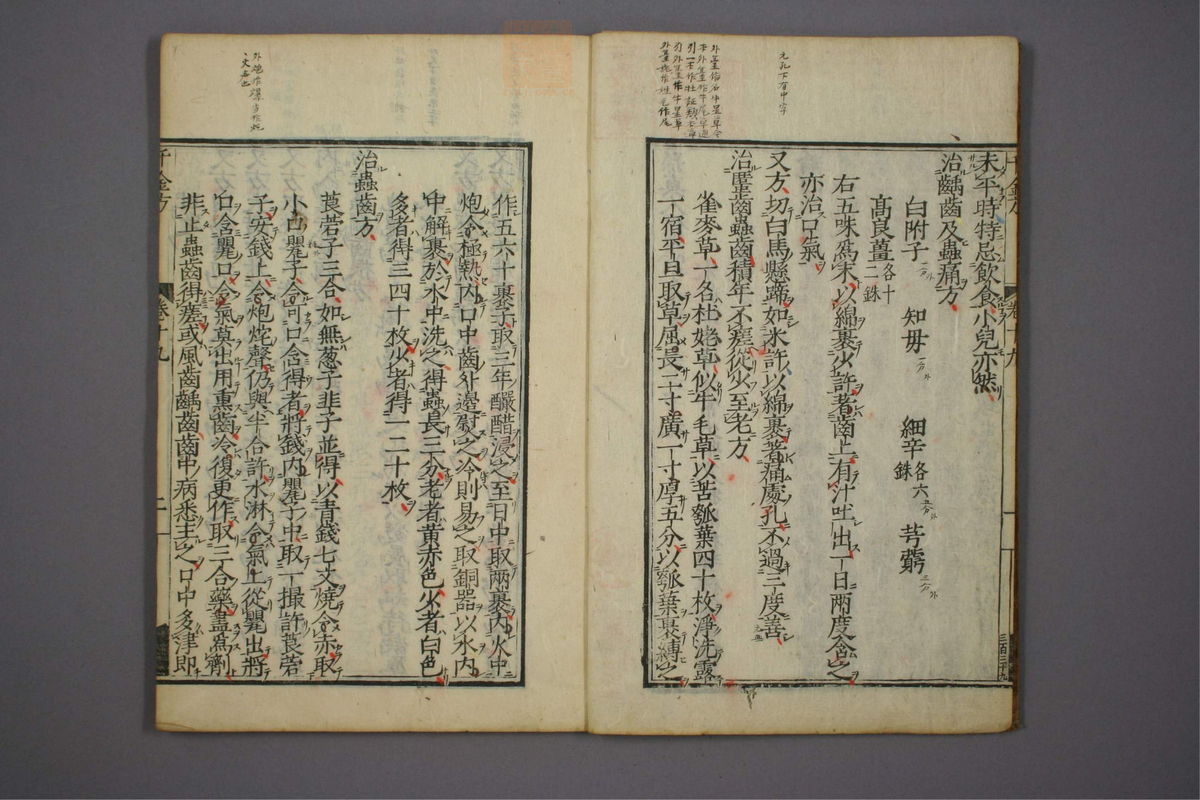 未平時特忌飲食小兒亦然
治齲齒及蟲痛方
白附子 知毋 細辛各六銖 芎藭
高良薑各十二銖
右五味爲末以綿裹少許著齒上有汁吐出一日兩度含之
亦治口氣
又方切白馬懸蹄如米許以綿裹著痛處孔不過三度善
治䘌齒蟲齒積年不瘥從少至老方
雀麥草一名杜姥草似牛毛草以苦瓠葉四十枚淨洗露
一宿平旦取草屈長二寸廣一寸厚五分以瓠葉裹縛之
作五六十裹子取三年釅醋浸之至日中取兩裹內火中
炮令極熱內口中齒外邊熨之冷則易之取銅器以水內
中解裹於水中洗之得蟲長三分老者黃赤色少者白色
多者得三四十枚少者得一二十枚
治蟲齒方
莨菪子三合如無葱子韭子並得以青錢七文燒令赤取
小口甖子令可口含得者將錢內甖子中取一撮許莨菪
子安錢上令炮烢聲仍與半合許水淋令氣上從甖出將
口含甖口令氣莫出用熏齒冷復更作取三合藥盡爲劑
非止蟲齒得瘥或風齒齲齒齒中病悉主之口中多津即
千金方 卷十九
三百三十九
元孔下有中字